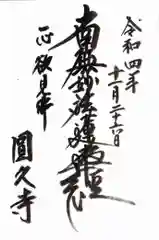 令和四年
十一月二十六日
南無妙法蓮華経
圓久寺